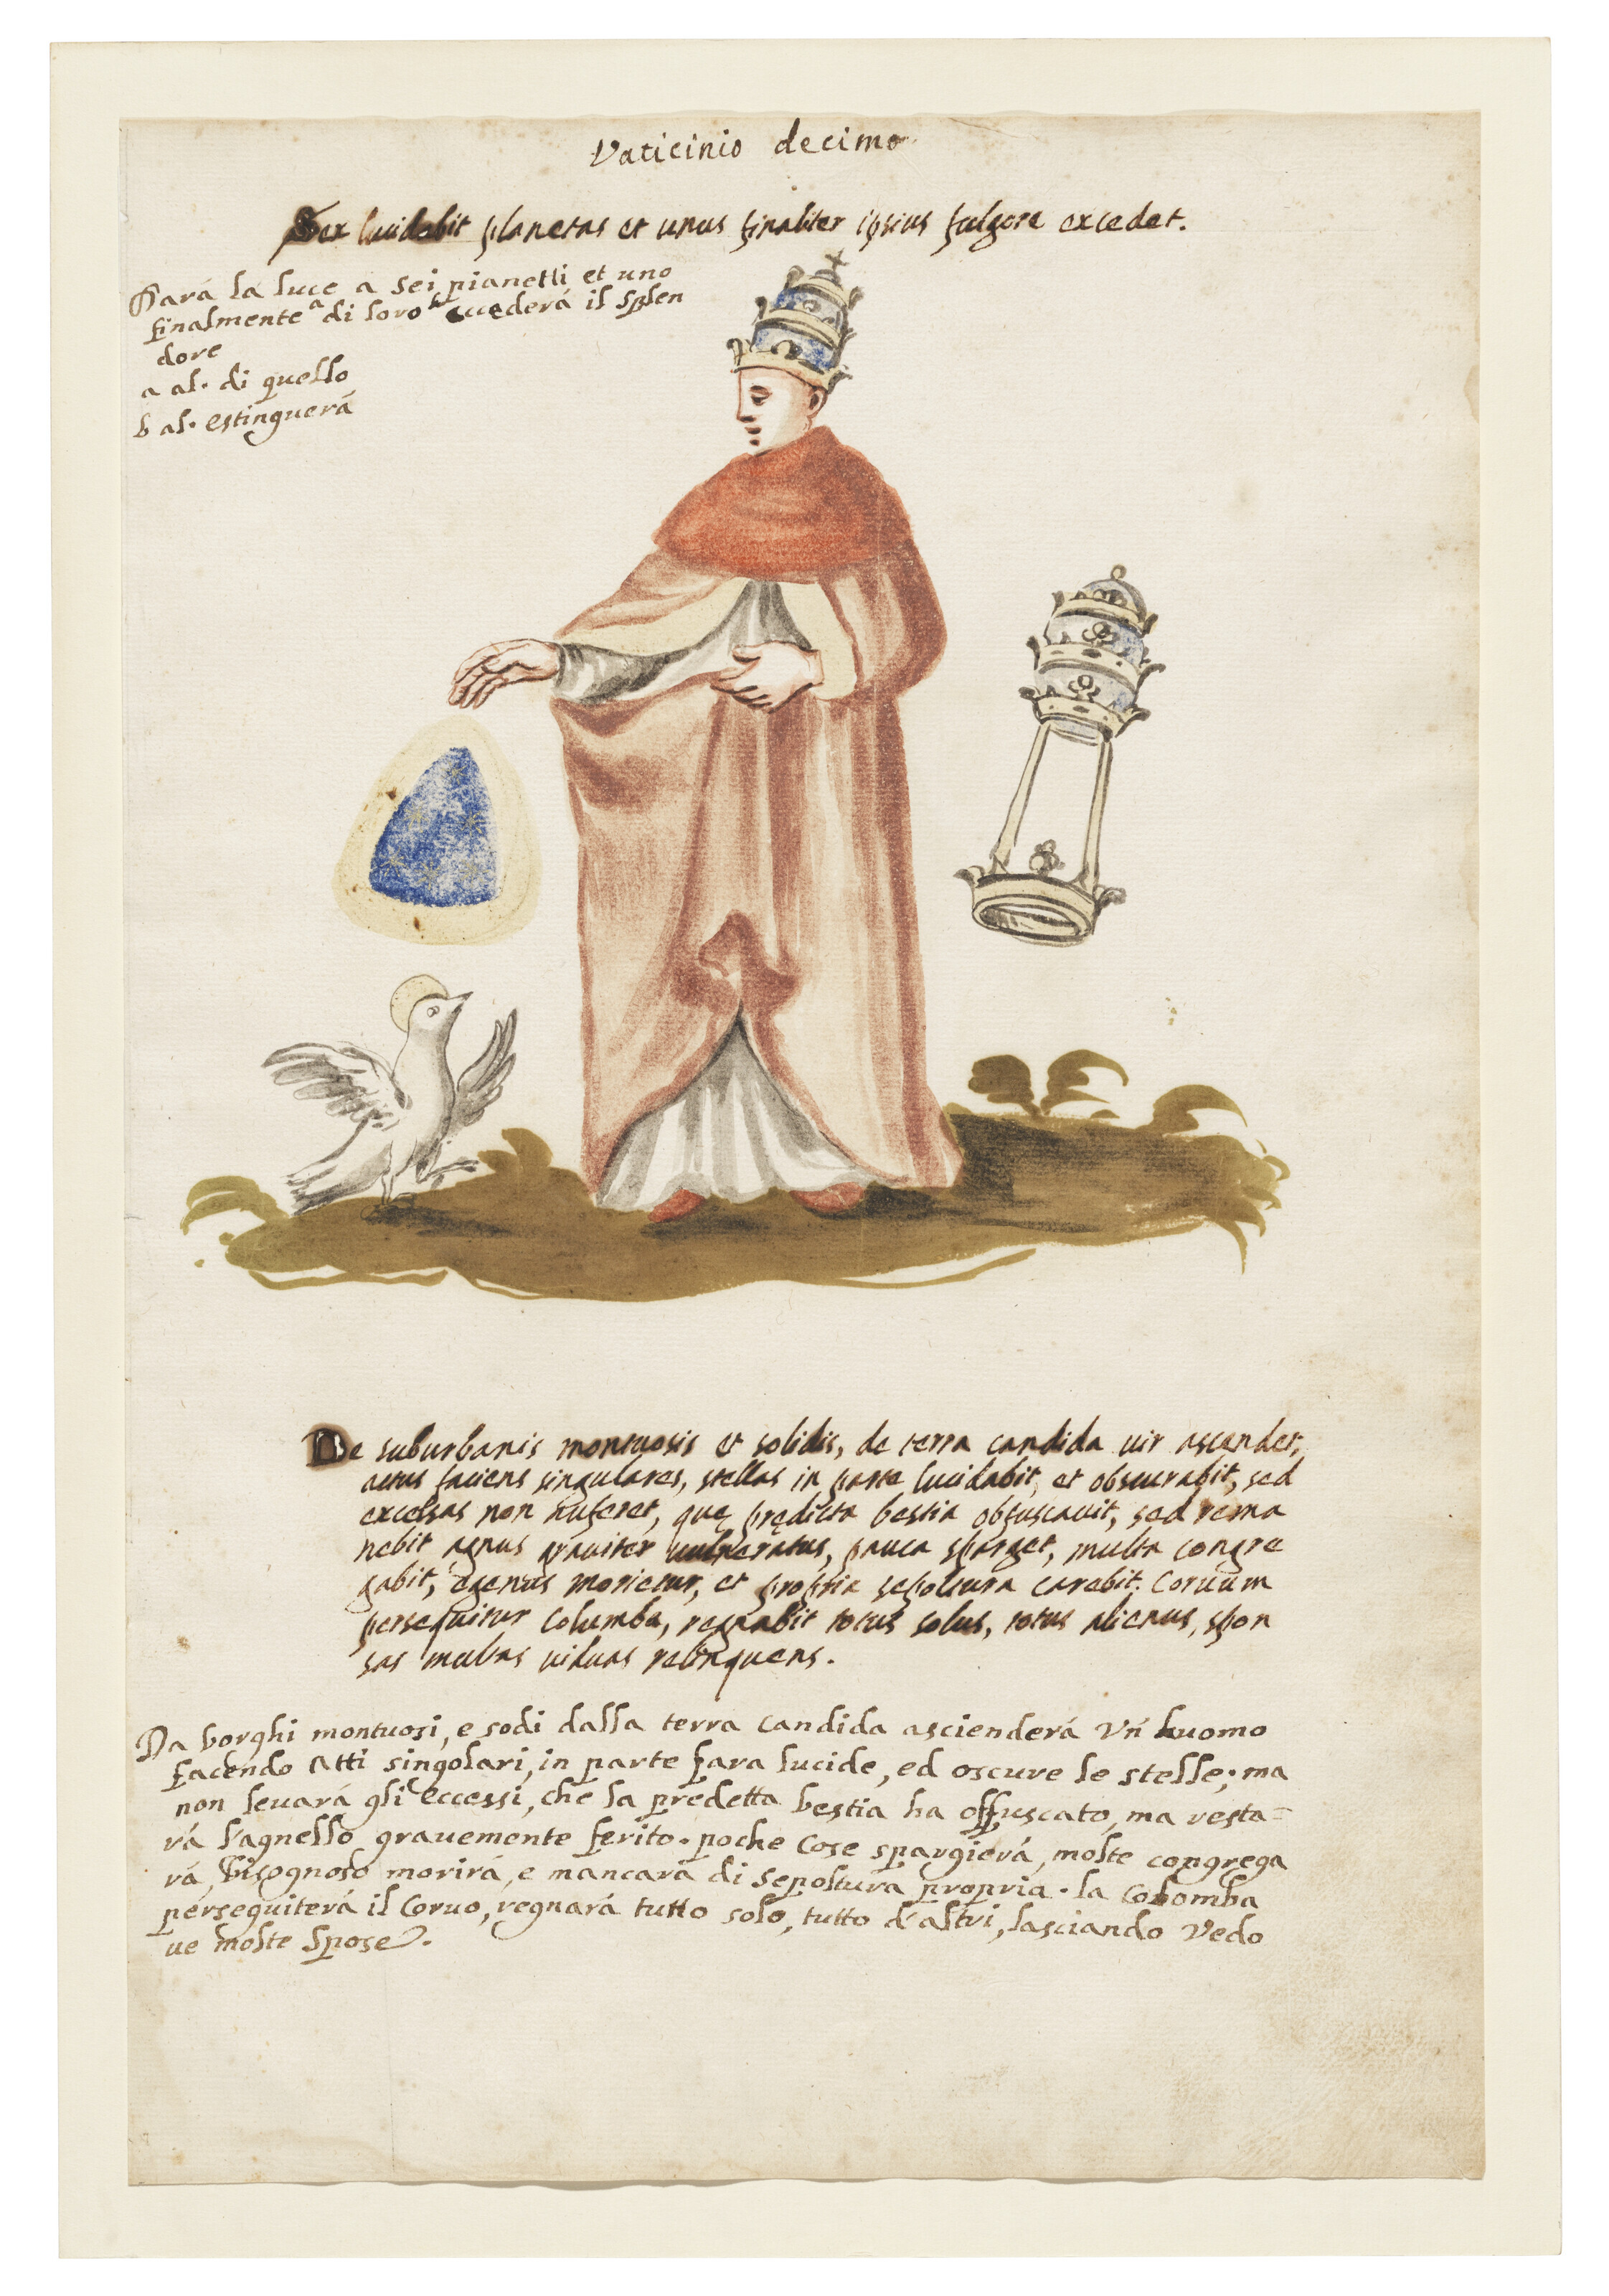 Vaticinio decimo
Sex lucidabit planetas et unus finaliter ipsius fulgore excedet.
Dará la luce a sei pianetti et uno
finalmente a di loro b eccederá il splen
dore
a al. di quello
b al. estinguerá
De suburbanis montuosis et solidis, de terra candida uir ascendet,
actus faciens singulares, stellas in parte lucidabit, et obscurabit, sed
excelsas non auferet, quę prędicta bestia obfuscauit, sed rema
nebit agnus grauiter uulneratus, pauca sparget, multa congre
gabit, egenus morietur, et propria sepoltura carebit. Coruum
persequitur columba, regnabit totus solus, totus alienus, spon
sas multas uiduas relinquens.
Da borghi montuosi, e sodi dalla terra candida ascienderá Vn huomo
facendo Atti singolari, in parte fara lucide, ed oscure le stelle; ma
non leuará gli eccessi, che la predetta bestia ha offuscato, ma resta=
rá l'agnello grauemente ferito. poche Cose spargierá, molte congrega
rá, Bisognoso morirá, e mancará di Sepoltura propria. la Colomba
perseguiterá il Coruo, regnará tutto solo, tutto d'altri, lasciando Vedo
ue molte Spose.